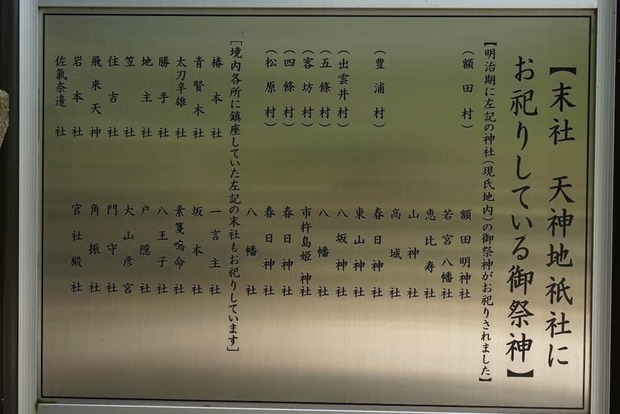 【末社 天神地祇社に
お祀りしている御祭神】
【明治期に左記の神社(現氏地内)の御祭神がお祀りされました】
(額田村) 額田明神社
若宮八幡社
恵比寿社
山神社
高城社
(豊浦村) 春日神社
東山神社
(出雲井村) 八坂神社
(五條村) 八幡社
(客坊村) 市杵島姫神社
(四條村) 春日神社
(松原村) 春日神社
八幡社
[境内各所に鎮座していた左記の末社もお祀りしています]
椿本社 一言主社
青賢木社 坂本社
太刀辛雄社 素戔嗚命社
勝手社 八王子社
地主社 戸隠社
笠社 大山彦宮
住吉社 門守社
飛来天神 角振社
岩本社 官社殿社
佐氣奈邊社